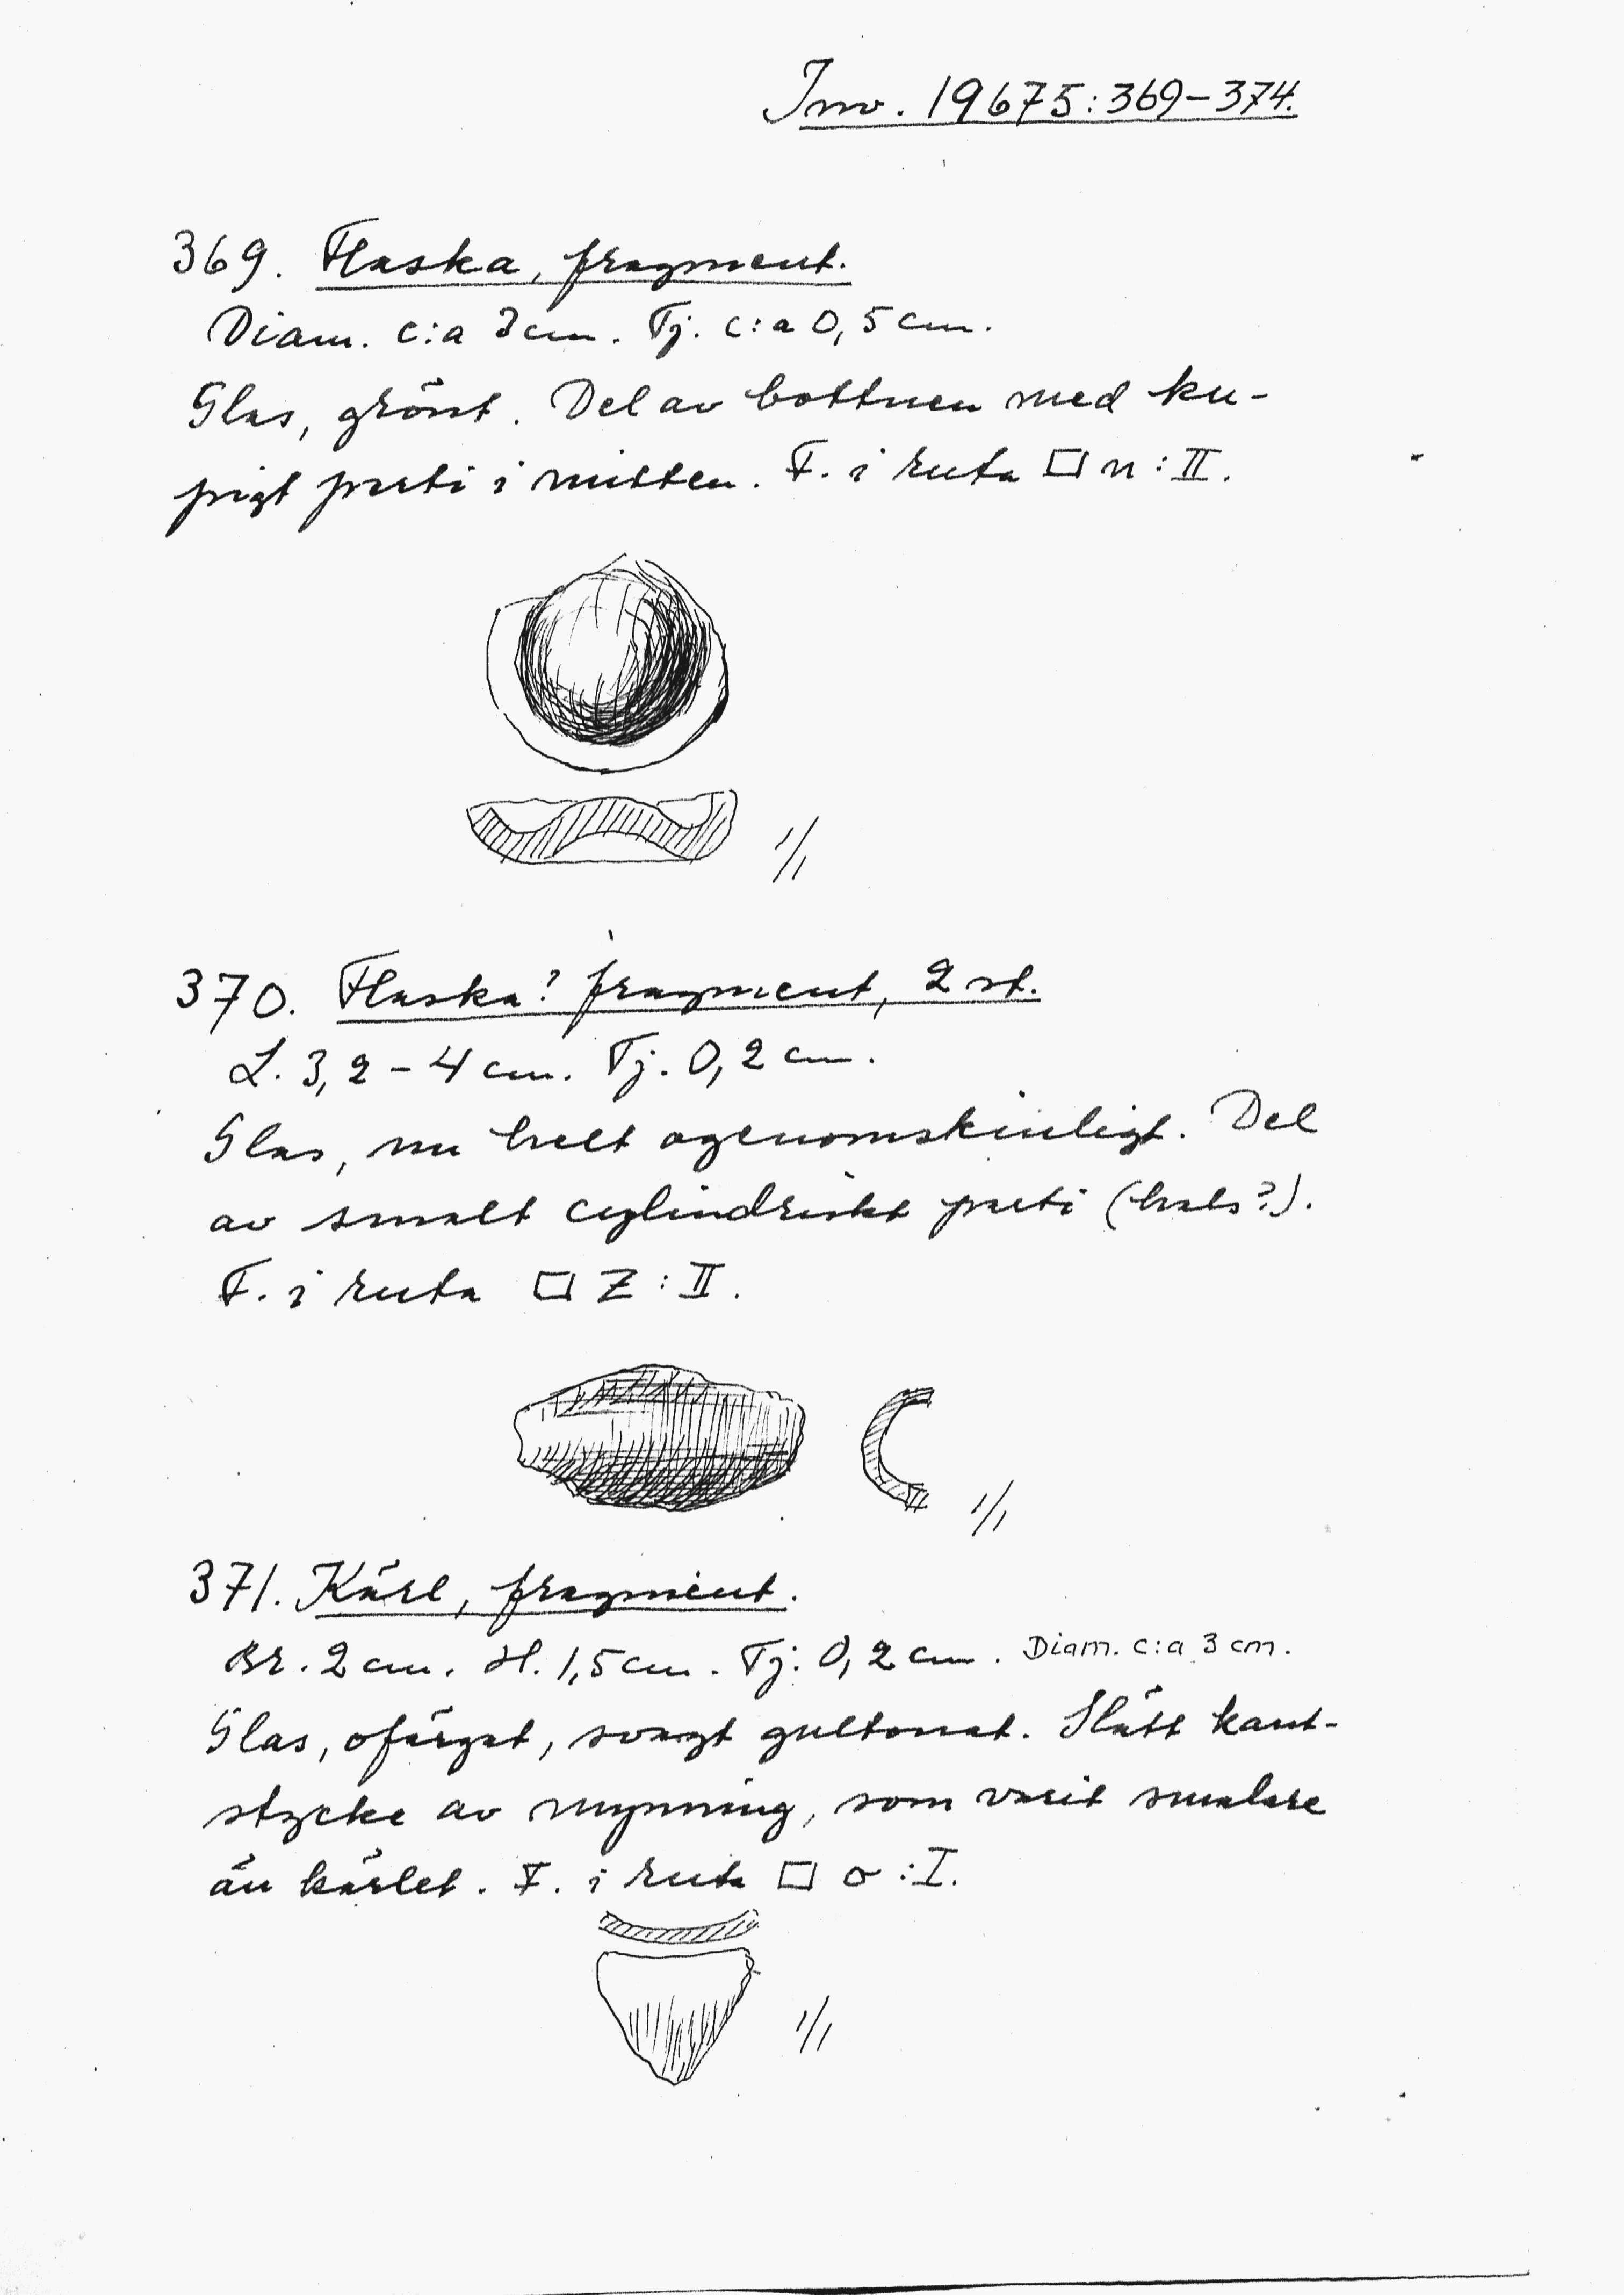 Inv. 19675:369-374.
369. Flaska, fragment.
Diam. c:a 3 cm. Tj. c:a 0,5 cm.
Glas, grönt. Del av bottnen med ku-
pigt parti i mitten. F. i ruta □ n : II.
1/1
370. Flaska? fragment, 2 st.
L. 3,2 - 4 cm. Tj. 0,2 cm.
Glas, nu helt ogenomskinligt. Del
av smalt cylindriskt parti (hals?).
F. i ruta □ Z : II.
1/1
371. Kärl, fragment.
Br. 2 cm. H. 1,5 cm. Tj. 0,2 cm. Diam. c:a 3 cm.
Glas, ofärgat, svagt gultonat. Slätt kant-
stycke av mynning, som varit smalare
än kärlet. F. i ruta □ o : I.
1/1